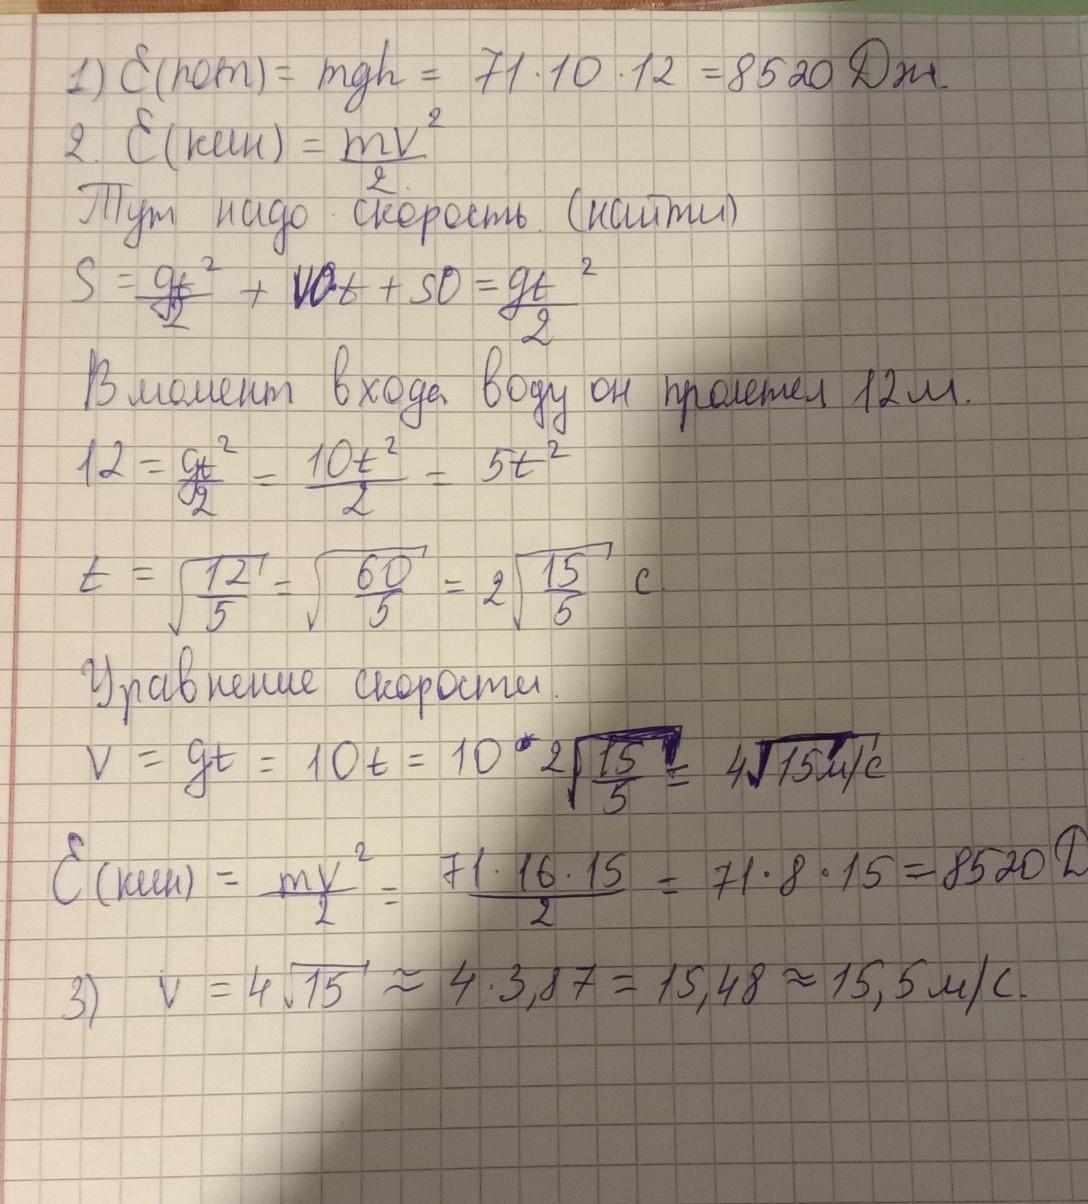 1) E(пот) = mgh = 71·10·12 = 8520 Дж
2. E(кин) = mv²/2
Тут надо скорость (найти)
S = gt²/2 + V0t + S0 = gt²/2
В момент входа воду он пролетел 12м.
12 = gt²/2 = 10t²/2 = 5t²
t = √(12/5) = √(60/5) = 2√(15/5) с
Уравнение скорости.
v = gt = 10t = 10·2√(15/5) = 4√15 м/с
E(кин) = mv²/2 = 71·16·15/2 = 71·8·15 = 8520 Д
3) v = 4√15 ≈ 4·3,87 = 15,48 ≈ 15,5 м/с.